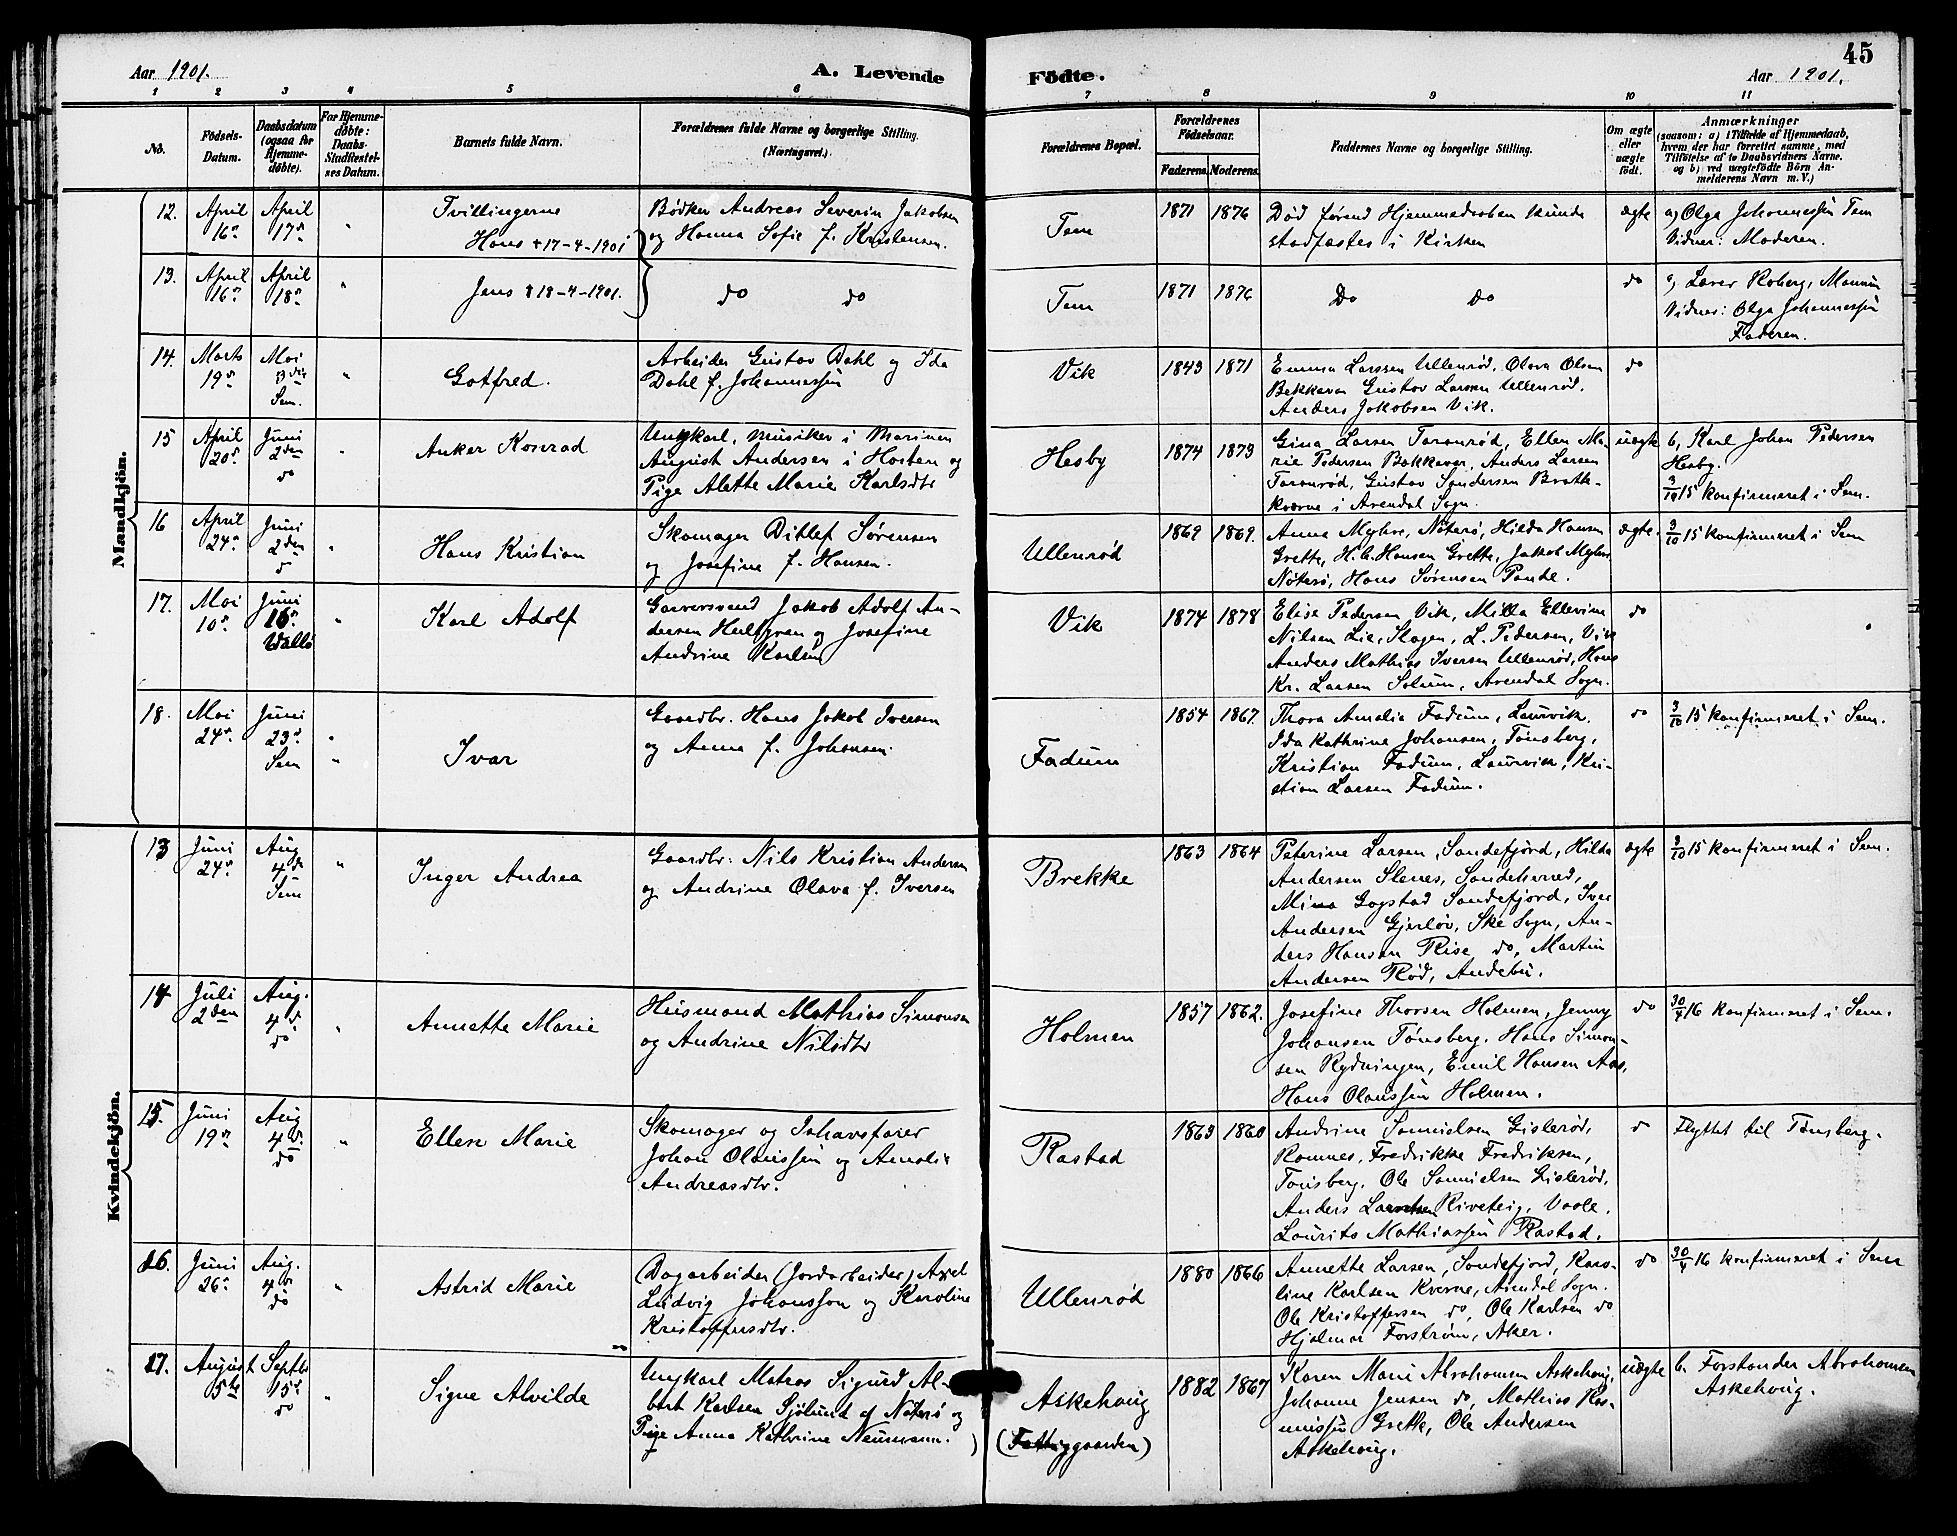 45
Aar 1901.
A. Levende Födte.
Aar 1901.
1 2 3 4 5 6 7 8 9 10 11
No.
Födsels-
Datum.
Daabsdatum
(ogsaa for
Hjemme-
døbte).
For Hjemme-
døbte:
Daabs-
Stadfæstel-
ses Datum.
Barnets fulde Navn.
Forældrenes fulde Navne og borgerlige Stilling.
(Næringsvei.)
Forældrenes Bopæl.
Forældrenes
Födselsaar.
Faderens. Moderens.
Faddernes Navne og borgerlige Stilling.
Om ægte
eller
uægte
födt.
Anmærkninger
(saasom: a) i Tilfælde af Hjemmedaab,
hvem der har forrettet samme, med
Tilföielse af to Daabsvidners Navne,
og b) ved uægtefödte Börn An-
melderens Navn m. V.)
Mandkjön.
12.
April
16de
April
17de
"
Tvillingerne
Hans + 17-4-1901
Bødker Andreas Severin Jakobsen
og Hanna Sofie f. Kristensen.
Tem
1871
1876
Död förend Hjemmedaaben kunde
stadfæstes i Kirken
ægte
a) Olga Johannessen Tem
Vidner: Moderen.
13.
April
16de
April
18de
"
Jens + 18-4-1901.
do do
Tem
1871
1876
Do Do
do
a) Lærer Roberg,
Vidner: Olga Johannessen
Faderen.
14.
Marts
19de
Mai
3die
Sem.
"
Gotfred.
Arbeider Gustav Dahl og Ida
Dahl f. Johannessen
Vik
1843
1871
Emma Larsen Ullenröd, Olava Olsen
Bekkevar Gustav Larsen Ullenröd.
Anders Jakobsen Vik.
do
15
April
20de
Juni
2den
do
"
Anker Konrad
Ungkarl, Musiker i Marinen
August Andersen i Horten og
Pige Alette Marie Karlsdtr
Hesby
1874
1873
Gina Larsen Taranröd, Ellen Ma-
rie Pedersen Bekkevar, Anders Larsen
Taranröd, Gustav Sandersen Bratt-
kværne i Arendal Sogn.
uægte
b, Karl Johan Pedersen
Hesby.
3/10 15 konfirmeret i Sem.
16
April
24de
Juni
2den
do
"
Hans Kristian
Skomager Ditlef Sørensen
og Josefine f. Hansen.
Ullenröd
1869
1869.
Anna Myhre, Nöterö, Hilda Hansen
Grette, H. A. Hansen Grette, Jakob Myhre
Nöterö, Hans Sörensen Pante.
ægte.
3/10 15 konfirmeret i Sem
17.
Mai
10de
Juni
16de
Vallö
"
Karl Adolf
Garversvend Jakob Adolf An-
dersen Hultgren og Josefine
Andrine Karlsen
Vik
1874
1878
Elise Pedersen Vik, Milla Ellevine
Nilsen Lie, Slagen, L. Pedersen, Vik
Anders Mathias Iversen Ullenröd, Hans
Kr. Larsen Solum, Arendal Sogn.
do
18.
Mai
24de
Juni
23de
Sem
"
"
Ivar
Gaardbr. Hans Jakob Iversen
og Anna f. Johansen.
Fadum
1854
1867.
Thora Amalia Fadum, Laurvik.
Ida Kathrine Johansen, Tönsberg,
Kristian Fadum, Laurvik, Kri-
stian Larsen Fadum.
do
3/10 15 konfirmeret i Sem.
Kvindekjön.
13
Juni
24de
Aug
4de
Sem
"
Inger Andrea
Gaardbr. Nils Kristian Andersen
og Andrine Olava f. Iversen
Brekke
1863
1864
Peterine Larsen, Sandefjord, Hilda
Andersen Slenes, Sandeherred,
Mina Gogstad Sandefjord, Iver
Andersen Gjerlöv, Ske Sogn, An-
ders Hansen Rise do, Martin
Andersen Röd, Andebu.
ægte
3/10 15 konfirmeret i Sem.
14
Juli
2den
Aug.
4de
do
"
Annette Marie
Husmand Mathias Simonsen
og Andrine Nilsdtr
Holmen
1857
1862.
Josefine Thorsen Holmen, Jenny
Johansen Tönsberg, Hans Simon-
sen Rydningen, Emil Hansen Aas,
Hans Olaussen Holmen.
do
30/4 16 konfirmeret i Sem.
15.
Juni
19de
Aug
4de
do
"
Ellen Marie
Skomager og Ishavsfarer
Johan Olaussen og Amalie
Andreasdtr.
Rastad
1863
1860
Andrine Samuelsen Gislerød,
Ramnes, Fredrikke Fredriksen,
Tönsberg. Ole Samuelsen Gislerød,
Anders Larsen Kiveteig, Vaale.
Laurits Mathiassen Rastad.
do
Flyttet til Tönsberg.
16.
Juni
26de
Aug.
4de
do
"
Astrid Marie
(Dagarbeider (Jordarbeider) Axel
Ludvig Johansson og Karoline
Kristoffersdtr.
Ullenröd
1880
1866
Annette Larsen, Sandefjord, Karo-
line Karlsen Kverne, Arendal Sogn.
Ole Kristoffersen do, Ole Karlsen do
Hjalmar Forström, Aker.
do
30/4 16 konfirmeret i Sem
17.
August
5te
Septbr
15de
do
"
Signe Alvilde
Ungkarl Matros Sigurd Al-
bert Karlsen Sjölund af Nöterö og
Pige Anna Kathrine Neumann.
Askehaug
(Fattiggaarden)
1882
1867
Karen Marie Abrahamsen Askehaug,
Johanne Jensen do, Mathias Ras-
mussen Grette, Ole Andersen
Askehaug.
uægte
b. Forstander Abrahamsen
Askehaug.